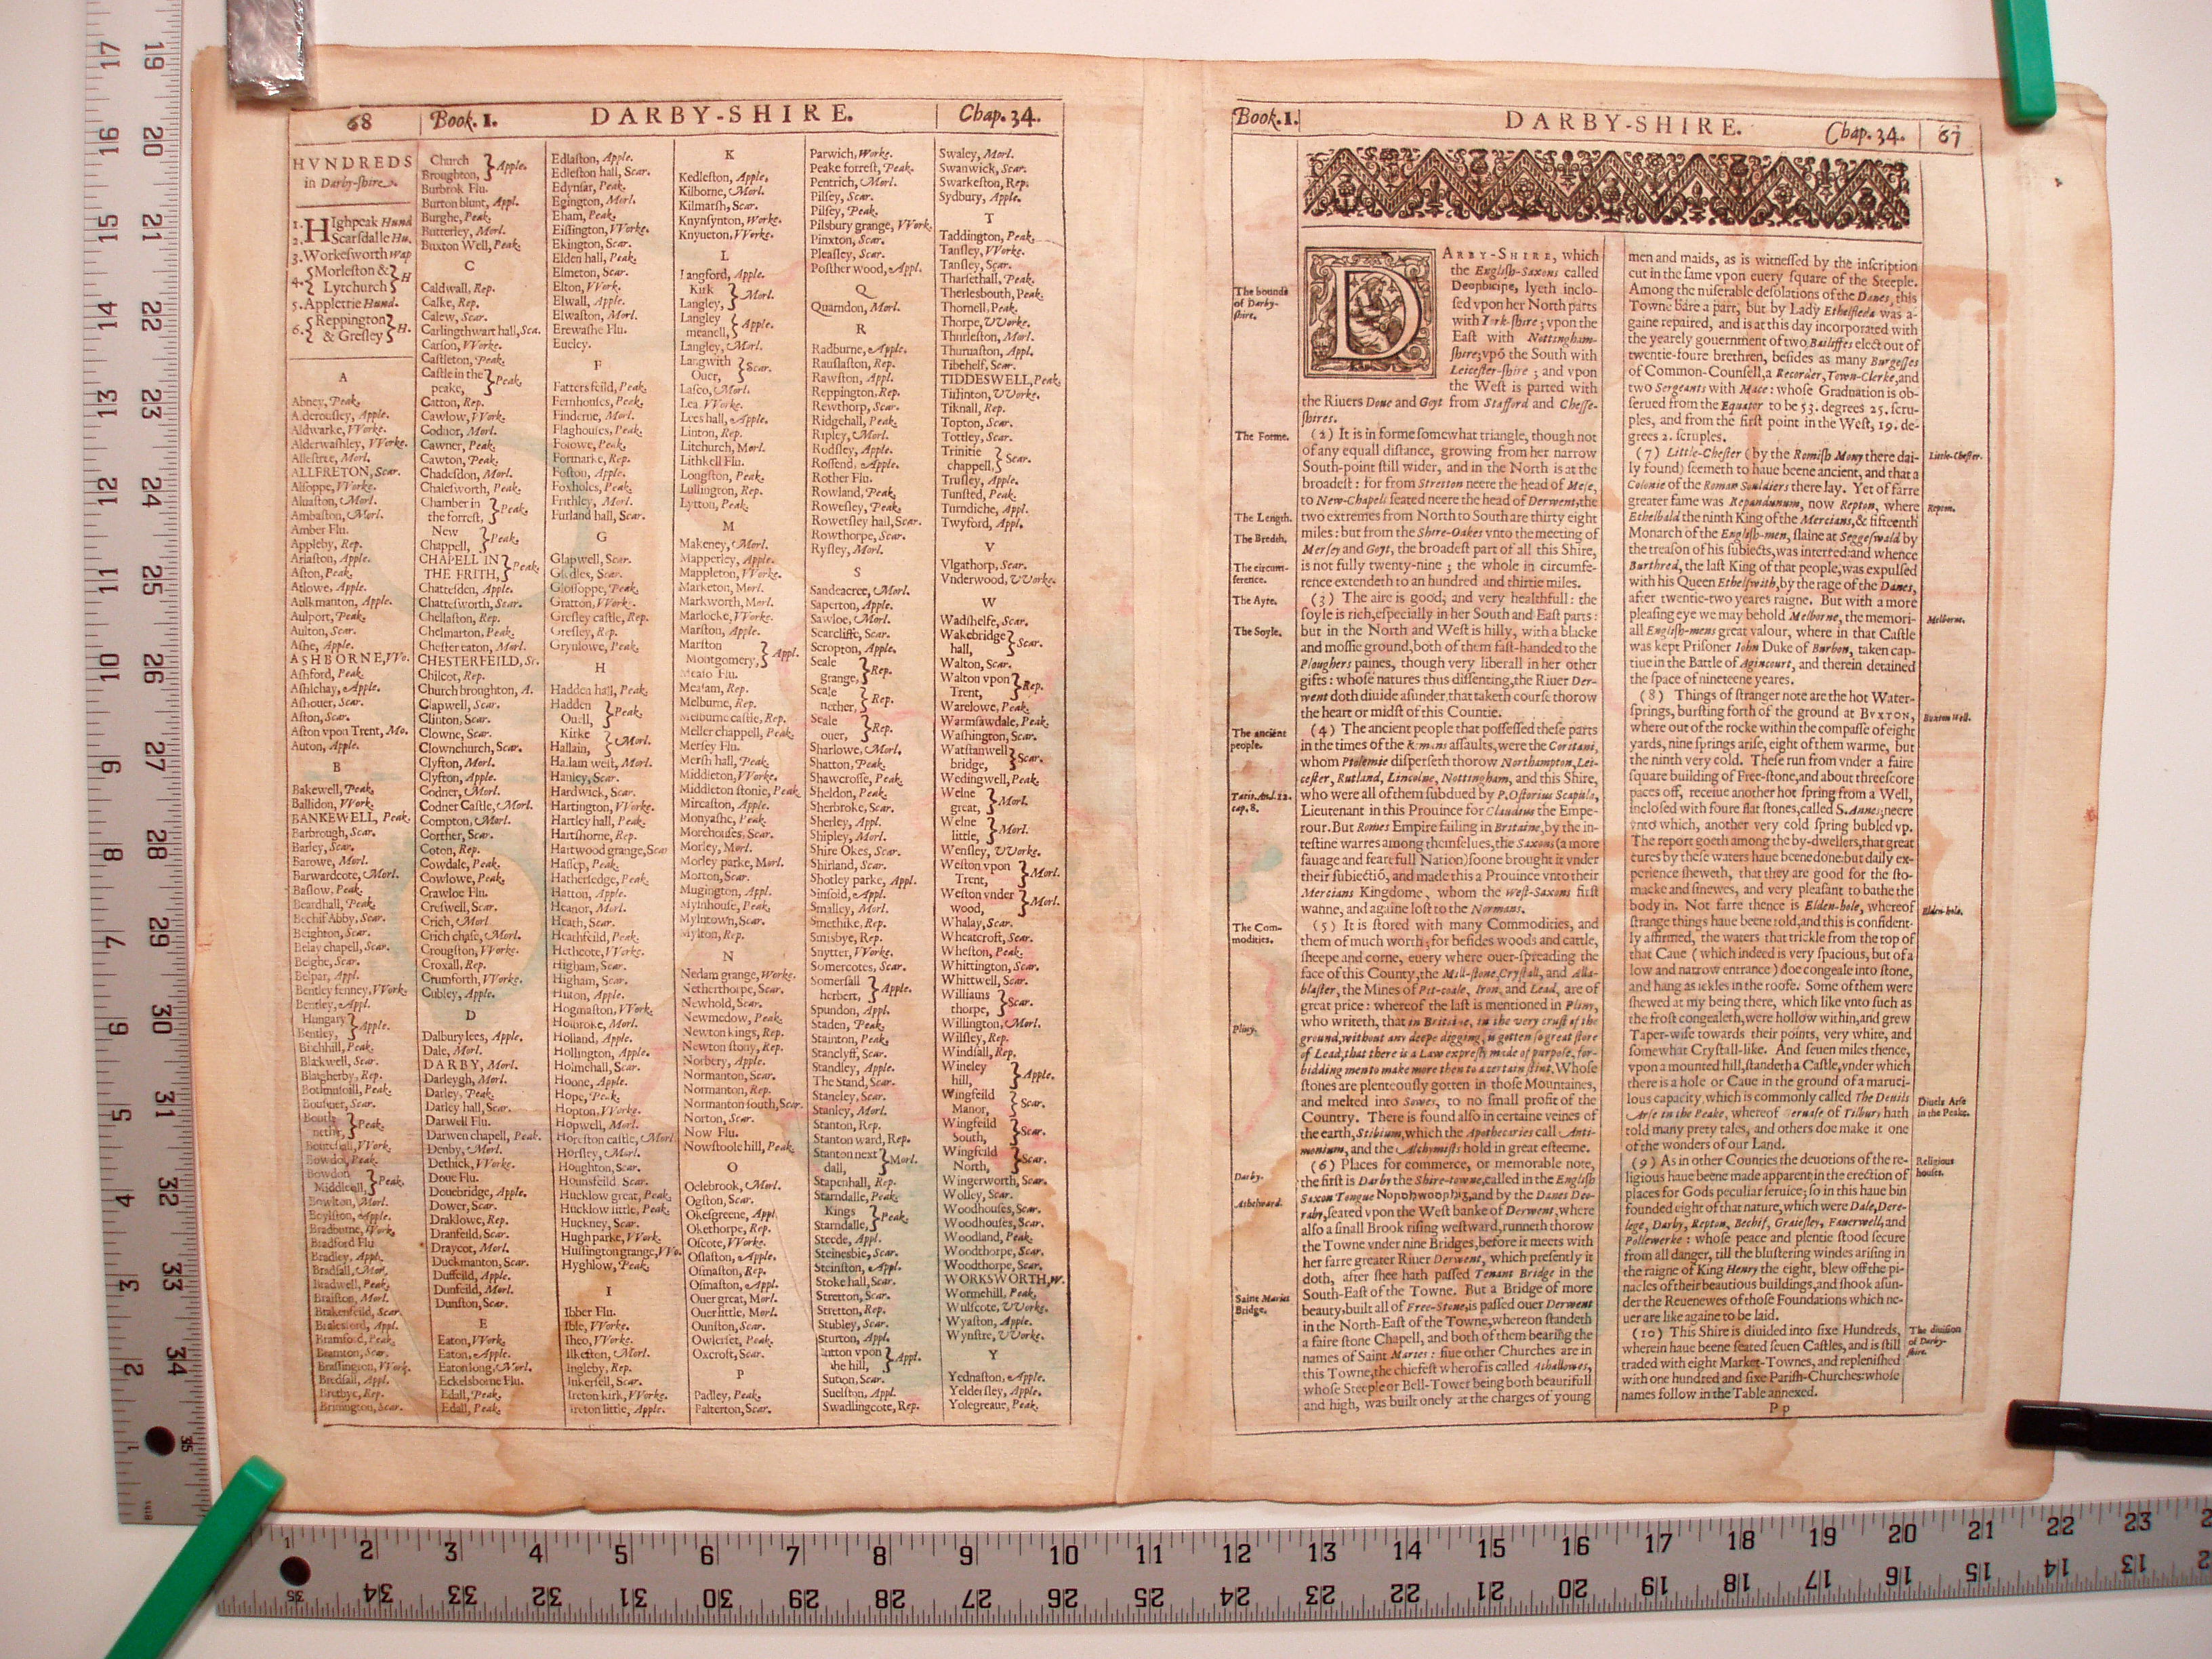 68 Book. I. DARBY-SHIRE. Chap. 34.
HVNDREDS
in Darby-ſhire.
1. HIghpeak Hund
2. Scarſdalle Hu.
3. Workeſworth Wap
4. Morleſton & Lytchurch H
5. Appletrie Hund.
6. Reppington & Greſley H.
A
Abney, Peak.
Alderouſley, Apple.
Aldwarke, VVorke.
Alderwaſhley, VVorke.
Alleſtree, Morl.
ALLFRETON, Scar.
Alſoppe, VVorke.
Aluaſton, Morl.
Ambaſton, Morl.
Amber Flu.
Appleby, Rep.
Arlaſton, Apple.
Aſton, Peak.
Atlowe, Apple.
Aulkmanton, Apple.
Aulport, Peak.
Aulton, Scar.
Aſhe, Apple.
ASHBORNE, VVo.
Aſhford, Peak.
Aſhlehay, Apple.
Aſhouer, Scar.
Aſton, Scar.
Aſton vpon Trent, Mo.
Auton, Apple.
B
Bakewell, Peak.
Ballidon, VVork.
BANKEWELL, Peak.
Barbrough, Scar.
Barley, Scar.
Barowe, Morl.
Barwardcote, Morl.
Baſlow, Peak.
Beardhall, Peak.
Bechif Abby, Scar.
Beighton, Scar.
Belay chapell, Scar.
Beighe, Scar.
Belpar, Appl.
Bentley fenney, VVork.
Bentley, Appl.
Hungary
Bentley, Apple.
Birchhill, Peak.
Blackwell, Scar.
Blatgherby, Rep.
Bothmſoill, Peak.
Boulſouer, Scar.
Bouth
nether, Peak.
Bowdon
Middleall, Peak.
Bowlton, Morl.
Boylſton, Apple.
Bradburne, VVork.
Bradford Flu
Bradley, Appl.
Bradſall, Mor.
Bradwell, Peak.
Braiſton, Morl.
Brakenfeild, Scar.
Braleſford, Appl.
Bramford, Peak.
Bramton, Scar.
Braſſington, VVork.
Bredſall, Appl.
Bretbye, Rep.
Brimington, Scar.
Church
Broughton, Apple.
Burbrok Flu.
Burton blunt, Appl.
Burghe, Peak.
Butterley, Morl.
Buxton Well, Peak.
C
Caldwall, Rep.
Calke, Rep.
Calew, Scar.
Carlingthwart hall, Sca.
Carſon, VVorke.
Caſtleton, Peak.
Caſtle in the
peake, Peak.
Catton, Rep.
Cawlow, VVork.
Codnor, Morl.
Cawner, Peak.
Cawton, Peak.
Chadeſdon, Morl.
Chaleſworth, Peak.
Chamber in
the forreſt, Peak.
New
Chappell, Peak.
CHAPELL IN
THE FRITH, Peak.
Chatteſden, Apple.
Chatteſworth, Scar.
Chellaſton, Rep.
Chelmarton, Peak.
Cheſter eaton, Morl.
CHESTERFEILD, Sc.
Chilcot, Rep.
Church broughton, A.
Clapwell, Scar.
Clinton, Scar.
Clowne, Scar.
Clownchurch, Scar.
Clyfton, Morl.
Clyfton, Apple.
Codner, Morl.
Codner Caſtle, Morl.
Compton, Morl.
Corther, Scar.
Coton, Rep.
Cowdale, Peak.
Cowlowe, Peak.
Crawloe Flu.
Creſwell, Scar.
Crich, Morl.
Crich chaſe, Morl.
Crougſton, VVorke.
Croxall, Rep.
Crumforth, VVorke.
Cubley, Apple.
D
Dalbury lees, Apple.
Dale, Morl.
DARBY, Morl.
Darleygh, Morl.
Darley, Peak.
Darley hall, Scar.
Darwell Flu.
Darwen chapell, Peak.
Denby, Morl.
Dethick, VVorke.
Doue Flu.
Douebridge, Apple.
Dower, Scar.
Draklowe, Rep.
Dranfeild, Scar.
Draycot, Morl.
Duckmanton, Scar.
Duffeild, Apple.
Dunfeild, Morl.
Dunſton, Scar.
E
Eaton, VVork.
Eaton, Apple.
Eaton long, Morl.
Eckelsborne Flu.
Edall, Peak.
Edall, Peak.
Edlaſton, Apple.
Edleſton hall, Scar.
Edynſar, Peak.
Egington, Morl.
Eham, Peak.
Eiſſington, VVorke.
Ekington, Scar.
Elden hall, Peak.
Elmeton, Scar.
Elton, VVork.
Elwall, Apple.
Elwaſton, Morl.
Erewaſhe Flu.
Eueley.
F
Fattersfeild, Peak.
Fernhouſes, Peak.
Finderne, Morl.
Flaghouſes, Peak.
Folowe, Peak.
Formarke, Rep.
Foſton, Apple.
Foxholes, Peak.
Frithley, Morl.
Furland hall, Scar.
G
Glapwell, Scar.
Gladles, Scar.
Gloſſoppe, Peak.
Gratton, VVork.
Greſley caſtle, Rep.
Greſley, Rep.
Grynlowe, Peak.
H
Hadden hall, Peak.
Hadden
Ouell, Peak.
Kirke
Hallain, Morl.
Hallam weſt, Morl.
Hanley, Scar.
Hardwick, Scar.
Hartington, VVorke.
Hartley hall, Peak.
Hartſhorne, Rep.
Hartwood grange, Scar
Haſſep, Peak.
Hatherſedge, Peak.
Hatton, Apple.
Heanor, Morl.
Heath, Scar.
Heathfeild, Peak.
Hethcote, VVorke.
Higham, Scar.
Higham, Scar.
Hilton, Apple.
Hogmaſton, VVork.
Holbroke, Morl.
Holland, Apple.
Hollington, Apple.
Holmehall, Scar.
Hoone, Apple.
Hope, Peak.
Hopton, VVorke.
Hopwell, Morl.
Horeſton caſtle, Morl
Horſley, Morl.
Houghton, Scar.
Hounsfeild Scar.
Hucklow great, Peak.
Hucklow little, Peak.
Huckney, Scar.
Hugh parke, VVork.
Hulſington grange, VVo.
Hyghlow, Peak.
I
Ibber Flu.
Ible, VVorke.
Ilkeſton, Morl.
Ingleby, Rep.
Inkerſeil, Scar.
Ireton kirk, VVorke.
Ireton little, Apple.
K
Kedleſton, Apple.
Kilborne, Morl.
Kilmarſh, Scar.
Knynſynton, Worke.
Knyueton, VVorke.
L
Langford, Apple.
Kirk
Langley, Morl.
Langley
meanell, Apple.
Langley, Morl.
Langwith
Ouer, Scar.
Laſco, Morl.
Lea VVorke.
Lees hall, Apple.
Linton, Rep.
Litchurch, Morl.
Lithkell Flu.
Longſton, Peak.
Lullington, Rep.
Lytton, Peak.
M
Makeney, Morl.
Mapperley, Apple.
Mappleton, VVorke.
Marketon, Morl.
Markworth, Morl.
Marlocke, VVorke.
Marſton, Apple.
Marſton
Montgomery, Appl.
Mealo Flu.
Mealam, Rep.
Melburne, Rep.
Melburne caſtle, Rep.
Meller chappell, Peak.
Merſey Flu.
Merſh hall, Peak.
Middleton, VVorke.
Middleton ſtonie, Peak
Mircaſton, Apple.
Monyaſhe, Peak.
Morehouſes, Scar.
Morley, Morl.
Morley parke, Morl.
Morton, Scar.
Mugington, Appl.
Mylnhouſe, Peak.
Mylntown, Scar.
Mylton, Rep.
N
Nedam grange, Worke.
Netherthorpe, Scar.
Newhold, Scar.
Newmedow, Peak.
Newton kings, Rep.
Newton ſtony, Rep.
Norbery, Apple.
Normanton, Scar.
Normanton, Rep.
Normanton ſouth, Scar.
Norton, Scar.
Now Flu.
Nowſtoole hill, Peak.
O
Oclebrook, Morl.
Ogſton, Scar.
Okeſgreene, Appl
Okethorpe, Rep.
Olcote, VVorke.
Oſlaſton, Apple.
Oſmaſton, Rep.
Oſmaſton, Appl.
Ouer great, Morl.
Ouer little, Morl.
Ounſton, Scar.
Owlerſet, Peak.
Oxcroft, Scar.
P
Padley, Peak.
Palterton, Scar.
Parwich, Worke.
Peake forreſt, Peak.
Pentrich, Morl.
Pilſey, Scar.
Pilſey, Peak.
Pilsbury grange, VVork
Pinxton, Scar.
Pleaſley, Scar.
Poſther wood, Appl.
Q
Quarndon, Morl.
R
Radburne, Apple.
Rauſlaſton, Rep.
Rawſton, Appl.
Reppington, Rep.
Rewthorp, Scar.
Ridgehall, Peak.
Ripley, Morl.
Rodſley, Apple.
Roſſend, Apple.
Rother Flu.
Rowland, Peak.
Roweſley, Peak.
Rowetſley hall, Scar.
Rowthorpe, Scar.
Ryſley, Morl.
S
Sandeacree, Morl.
Saperton, Apple.
Sawloe, Morl.
Scarcliffe, Scar.
Scropton, Apple.
Seale
grange, Rep.
Seale
nether, Rep.
Seale
ouer, Rep.
Sharlowe, Morl.
Shatton, Peak.
Shawcroſſe, Peak.
Sheldon, Peak.
Sherbroke, Scar.
Sherley, Appl.
Shipley, Morl.
Shire Okes, Scar.
Shirland, Scar.
Shotley parke, Appl.
Sinfold, Appl.
Smalley, Morl.
Smethike, Rep.
Smisbye, Rep.
Snytter, VVorke.
Somercotes, Scar.
Somerſall
herbert, Apple.
Spundon, Appl.
Staden, Peak.
Stainton, Peak.
Stanclyff, Scar.
Standley, Apple.
The Stand, Scar.
Stancley, Scar.
Stanley, Morl.
Stanton, Rep.
Stanton ward, Rep.
Stanton next
dall, Morl.
Stapenhall, Rep.
Starndale, Peak.
Kings
Starndalle, Peak.
Steede, Appl.
Steinesbie, Scar.
Steinſton, Appl.
Stoke hall, Scar.
Stretton, Scar.
Stretton, Rep.
Stubley, Scar.
Sturton, Appl.
Sutton vpon
the hill, Appl.
Sutton, Scar.
Suelſton, Appl.
Swadlingcote, Rep.
Swaley, Morl.
Swanwick, Scar.
Swarkeſton, Rep.
Sydbury, Apple.
T
Taddington, Peak.
Tanſley, VVorke.
Tanſley, Scar.
Tharſethall, Peak.
Therlesbouth, Peak.
Thornell, Peak.
Thorpe, VVorke.
Thurleſton, Morl.
Thuruaſton, Appl.
Tibehelf, Scar.
TIDDESWELL, Peak.
Tiſſinton, VVorke.
Tiknall, Rep.
Topton, Scar.
Tottley, Scar.
Trinitie
chappell, Scar.
Truſley, Apple.
Tunſted, Peak.
Turndiche, Appl.
Twyford, Appl.
V
Vlgathorp, Scar.
Vnderwood, VVorke.
W
Wadſhelfe, Scar.
Wakebridge
hall, Scar.
Walton, Scar.
Walton vpon
Trent, Rep.
Warelowe, Peak.
Warmſawdale, Peak.
Waſhington, Scar.
Watſtanwell
bridge, Scar.
Wedingwell, Peak.
Welne
great, Morl.
Welne
little, Morl.
Wenſley, VVorke.
Weſton vpon
Trent, Morl.
Weſton vnder
wood, Morl.
Whalay, Scar.
Wheatcroft, Scar.
Wheſton, Peak.
Whittington, Scar.
Whittwell, Scar.
Williams
thorpe, Scar.
Willington, Morl.
Wilſley, Rep.
Windſall, Rep.
Wineley
hill, Apple.
Wingfeild
Manor, Scar.
Wingfeild
South, Scar.
Wingfeild
North, Scar.
Wingerworth, Scar.
Wolley, Scar.
Woodhouſes, Scar.
Woodhouſes, Scar.
Woodland, Peak.
Woodthorpe, Scar.
Woodthorpe, Scar.
WORKSWORTH, W.
Wormehill, Peak.
Wulſcote, VVorke.
Wyaſton, Apple.
Wynſtre, VVorke.
Y
Yednaſton, Apple.
Yelderſley, Apple.
Yolegreaue, Peak.
Book. I. DARBY-SHIRE. Chap. 34. 67
The bounds
of Darby-
ſhire.
DARBY-SHIRE, which
the Engliſh-Saxons called
Deonbiſcipe, lyeth inclo-
ſed vpon her North parts
with York-ſhire; vpon the
Eaſt with Nottingham-
ſhire; vpō the South with
Leiceſter-ſhire; and vpon
the Weſt is parted with
the Riuers Doue and Goyt from Stafford and Cheſſe-
ſhires.
The Forme.
(2) It is in forme ſomewhat triangle, though not
of any equall diſtance, growing from her narrow
South-point ſtill wider, and in the North is at the
broadeſt: for from Streſton neere the head of Meſe,
to New-Chapell ſeated neere the head of Derwent, the
The Length.
two extremes from North to South are thirty eight
The Bredth.
miles: but from the Shire-Oakes vnto the meeting of
Merſey and Goyt, the broadeſt part of all this Shire,
The circum-
ference.
is not fully twenty-nine; the whole in circumfe-
rence extendeth to an hundred and thirtie miles.
The Ayre.
(3) The aire is good, and very healthfull: the
ſoyle is rich, eſpecially in her South and Eaſt parts:
The Soyle.
but in the North and Weſt is hilly, with a blacke
and moſſie ground, both of them faſt-handed to the
Ploughers paines, though very liberall in her other
gifts: whoſe natures thus diſſenting, the Riuer Der-
went doth diuide aſunder, that taketh courſe thorow
the heart or midſt of this Countie.
The ancient
people.
(4) The ancient people that poſſeſſed theſe parts
in the times of the Romans aſſaults, were the Coritani,
whom Ptolemie diſperſeth thorow Northampton, Lei-
ceſter, Rutland, Lincolne, Nottingham, and this Shire,
Tacit. An. l. 12.
cap. 8.
who were all of them ſubdued by P. Oſtorius Scapula,
Lieutenant in this Prouince for Claudius the Empe-
rour. But Romes Empire failing in Britaine, by the in-
teſtine warres among themſelues, the Saxons (a more
ſauage and fearefull Nation) ſoone brought it vnder
their ſubiectiō, and made this a Prouince vnto their
Mercians Kingdome, whom the Weſt-Saxons firſt
wanne, and againe loſt to the Normans.
The Com-
modities.
(5) It is ſtored with many Commodities, and
them of much worth; for beſides woods and cattle,
ſheepe and corne, euery where ouer-ſpreading the
face of this County, the Mill-ſtone, Cryſtall, and Alla-
blaſter, the Mines of Pit-coale, Iron, and Lead, are of
great price: whereof the laſt is mentioned in Pliny,
Pliny.
who writeth, that in Britaine, in the very cruſt of the
ground, without any deepe digging, is gotten ſo great ſtore
of Lead, that there is a Law expreſly made of purpoſe, for-
bidding men to make more then to a certain ſtint. Whoſe
ſtones are plenteouſly gotten in thoſe Mountaines,
and melted into Sowes, to no ſmall profit of the
Country. There is found alſo in certaine veines of
the earth, Stibium, which the Apothecaries call Anti-
monium, and the Alchymiſts hold in great eſteeme.
(6) Places for commerce, or memorable note,
Darby.
the firſt is Darby the Shire-towne, called in the Engliſh
Saxon Tongue and by the Danes Deo-
raby, ſeated vpon the Weſt banke of Derwent, where
Athelward.
alſo a ſmall Brook riſing weſtward, runneth thorow
the Towne vnder nine Bridges, before it meets with
her farre greater Riuer Derwent, which preſently it
doth, after ſhee hath paſſed Tenant Bridge in the
South-Eaſt of the Towne. But a Bridge of more
Saint Maries
Bridge.
beauty, built all of Free-Stone, is paſſed ouer Derwent
in the North-Eaſt of the Towne, whereon ſtandeth
a faire ſtone Chapell, and both of them bearing the
names of Saint Maries: fiue other Churches are in
this Towne, the chiefeſt wherof is called Alhallowes,
whoſe Steeple or Bell-Tower being both beautifull
and high, was built onely at the charges of young
men and maids, as is witneſſed by the inſcription
cut in the ſame vpon euery ſquare of the Steeple.
Among the miſerable deſolations of the Danes, this
Towne bare a part, but by Lady Ethelfleda was a-
gaine repaired, and is at this day incorporated with
the yearely gouernment of two Bailiffes elect out of
twentie-foure brethren, beſides as many Burgeſſes
of Common-Counſell, a Recorder, Town-Clerke, and
two Sergeants with Mace: whoſe Graduation is ob-
ſerued from the Equator to be 53. degrees 25. ſcru-
ples, and from the firſt point in the Weſt, 19. de-
grees 2. ſcruples.
Little-Cheſter.
(7) Little-Cheſter (by the Romiſh Mony there dai-
ly found) ſeemeth to haue beene ancient, and that a
Colonie of the Roman Souldiers there lay. Yet of farre
Repton.
greater fame was Repandunum, now Repton, where
Ethelbald the ninth King of the Mercians, & fifteenth
Monarch of the Engliſh-men, ſlaine at Seggeſwald by
the treaſon of his ſubiects, was interred: and whence
Burthred, the laſt King of that people, was expulſed
with his Queen Ethelſwith, by the rage of the Danes,
after twentie-two yeares raigne. But with a more
Melborne.
pleaſing eye we may behold Melborne, the memori-
all Engliſh-mens great valour, where in that Caſtle
was kept Priſoner Iohn Duke of Burbon, taken cap-
tiue in the Battle of Agincourt, and therein detained
the ſpace of nineteene yeares.
(8) Things of ſtranger note are the hot Water-
Buxton Well.
ſprings, burſting forth of the ground at BVXTON,
where out of the rocke within the compaſſe of eight
yards, nine ſprings ariſe, eight of them warme, but
the ninth very cold. Theſe run from vnder a faire
ſquare building of Free-ſtone, and about threeſcore
paces off, receiue another hot ſpring from a Well,
incloſed with foure flat ſtones, called S. Annes; neere
vnto which, another very cold ſpring bubled vp.
The report goeth among the by-dwellers, that great
cures by theſe waters haue beene done: but daily ex-
perience ſheweth, that they are good for the ſto-
macke and ſinewes, and very pleaſant to bathe the
Elden-hole.
body in. Not farre thence is Elden-hole, whereof
ſtrange things haue beene told, and this is confident-
ly affirmed, the waters that trickle from the top of
that Caue (which indeed is very ſpacious, but of a
low and narrow entrance) doe congeale into ſtone,
and hang as ickles in the roofe. Some of them were
ſhewed at my being there, which like vnto ſuch as
the froſt congealeth, were hollow within, and grew
Taper-wiſe towards their points, very white, and
ſomewhat Cryſtall-like. And ſeuen miles thence,
vpon a mounted hill, ſtandeth a Caſtle, vnder which
there is a hole or Caue in the ground of a maruei-
Diuels Arſe
in the Peake.
lous capacity, which is commonly called The Deuils
Arſe in the Peake, whereof Geruaſe of Tilbury hath
told many prety tales, and others doe make it one
of the wonders of our Land.
Religious
houſes.
(9) As in other Counties the deuotions of the re-
ligious haue beene made apparent in the erection of
places for Gods peculiar ſeruice; ſo in this haue bin
founded eight of that nature, which were Dale, Dere-
lege, Darby, Repton, Bechif, Graieſley, Fauerwell, and
Pollewerke: whoſe peace and plentie ſtood ſecure
from all danger, till the bluſtering windes ariſing in
the raigne of King Henry the eight, blew off the pi-
nacles of their beautious buildings, and ſhook aſun-
der the Reuenewes of thoſe Foundations which ne-
uer are like againe to be laid.
The diuiſion
of Darby-
ſhire.
(10) This Shire is diuided into ſixe Hundreds,
wherein haue beene ſeated ſeuen Caſtles, and is ſtill
traded with eight Market-Townes, and repleniſhed
with one hundred and ſixe Pariſh-Churches: whoſe
names follow in the Table annexed.
Pp
17 16 15 14 13 12 11 10 9 8 7 6 5 4 3 2 1
19 20 21 22 23 24 25 26 27 28 29 30 31 32 33 34 35
1 2 3 4 5 6 7 8 9 10 11 12 13 14 15 16 17 18 19 20 21 22 23
35 34 33 32 31 30 29 28 27 26 25 24 23 22 21 20 19 18 17 16 15 14 13